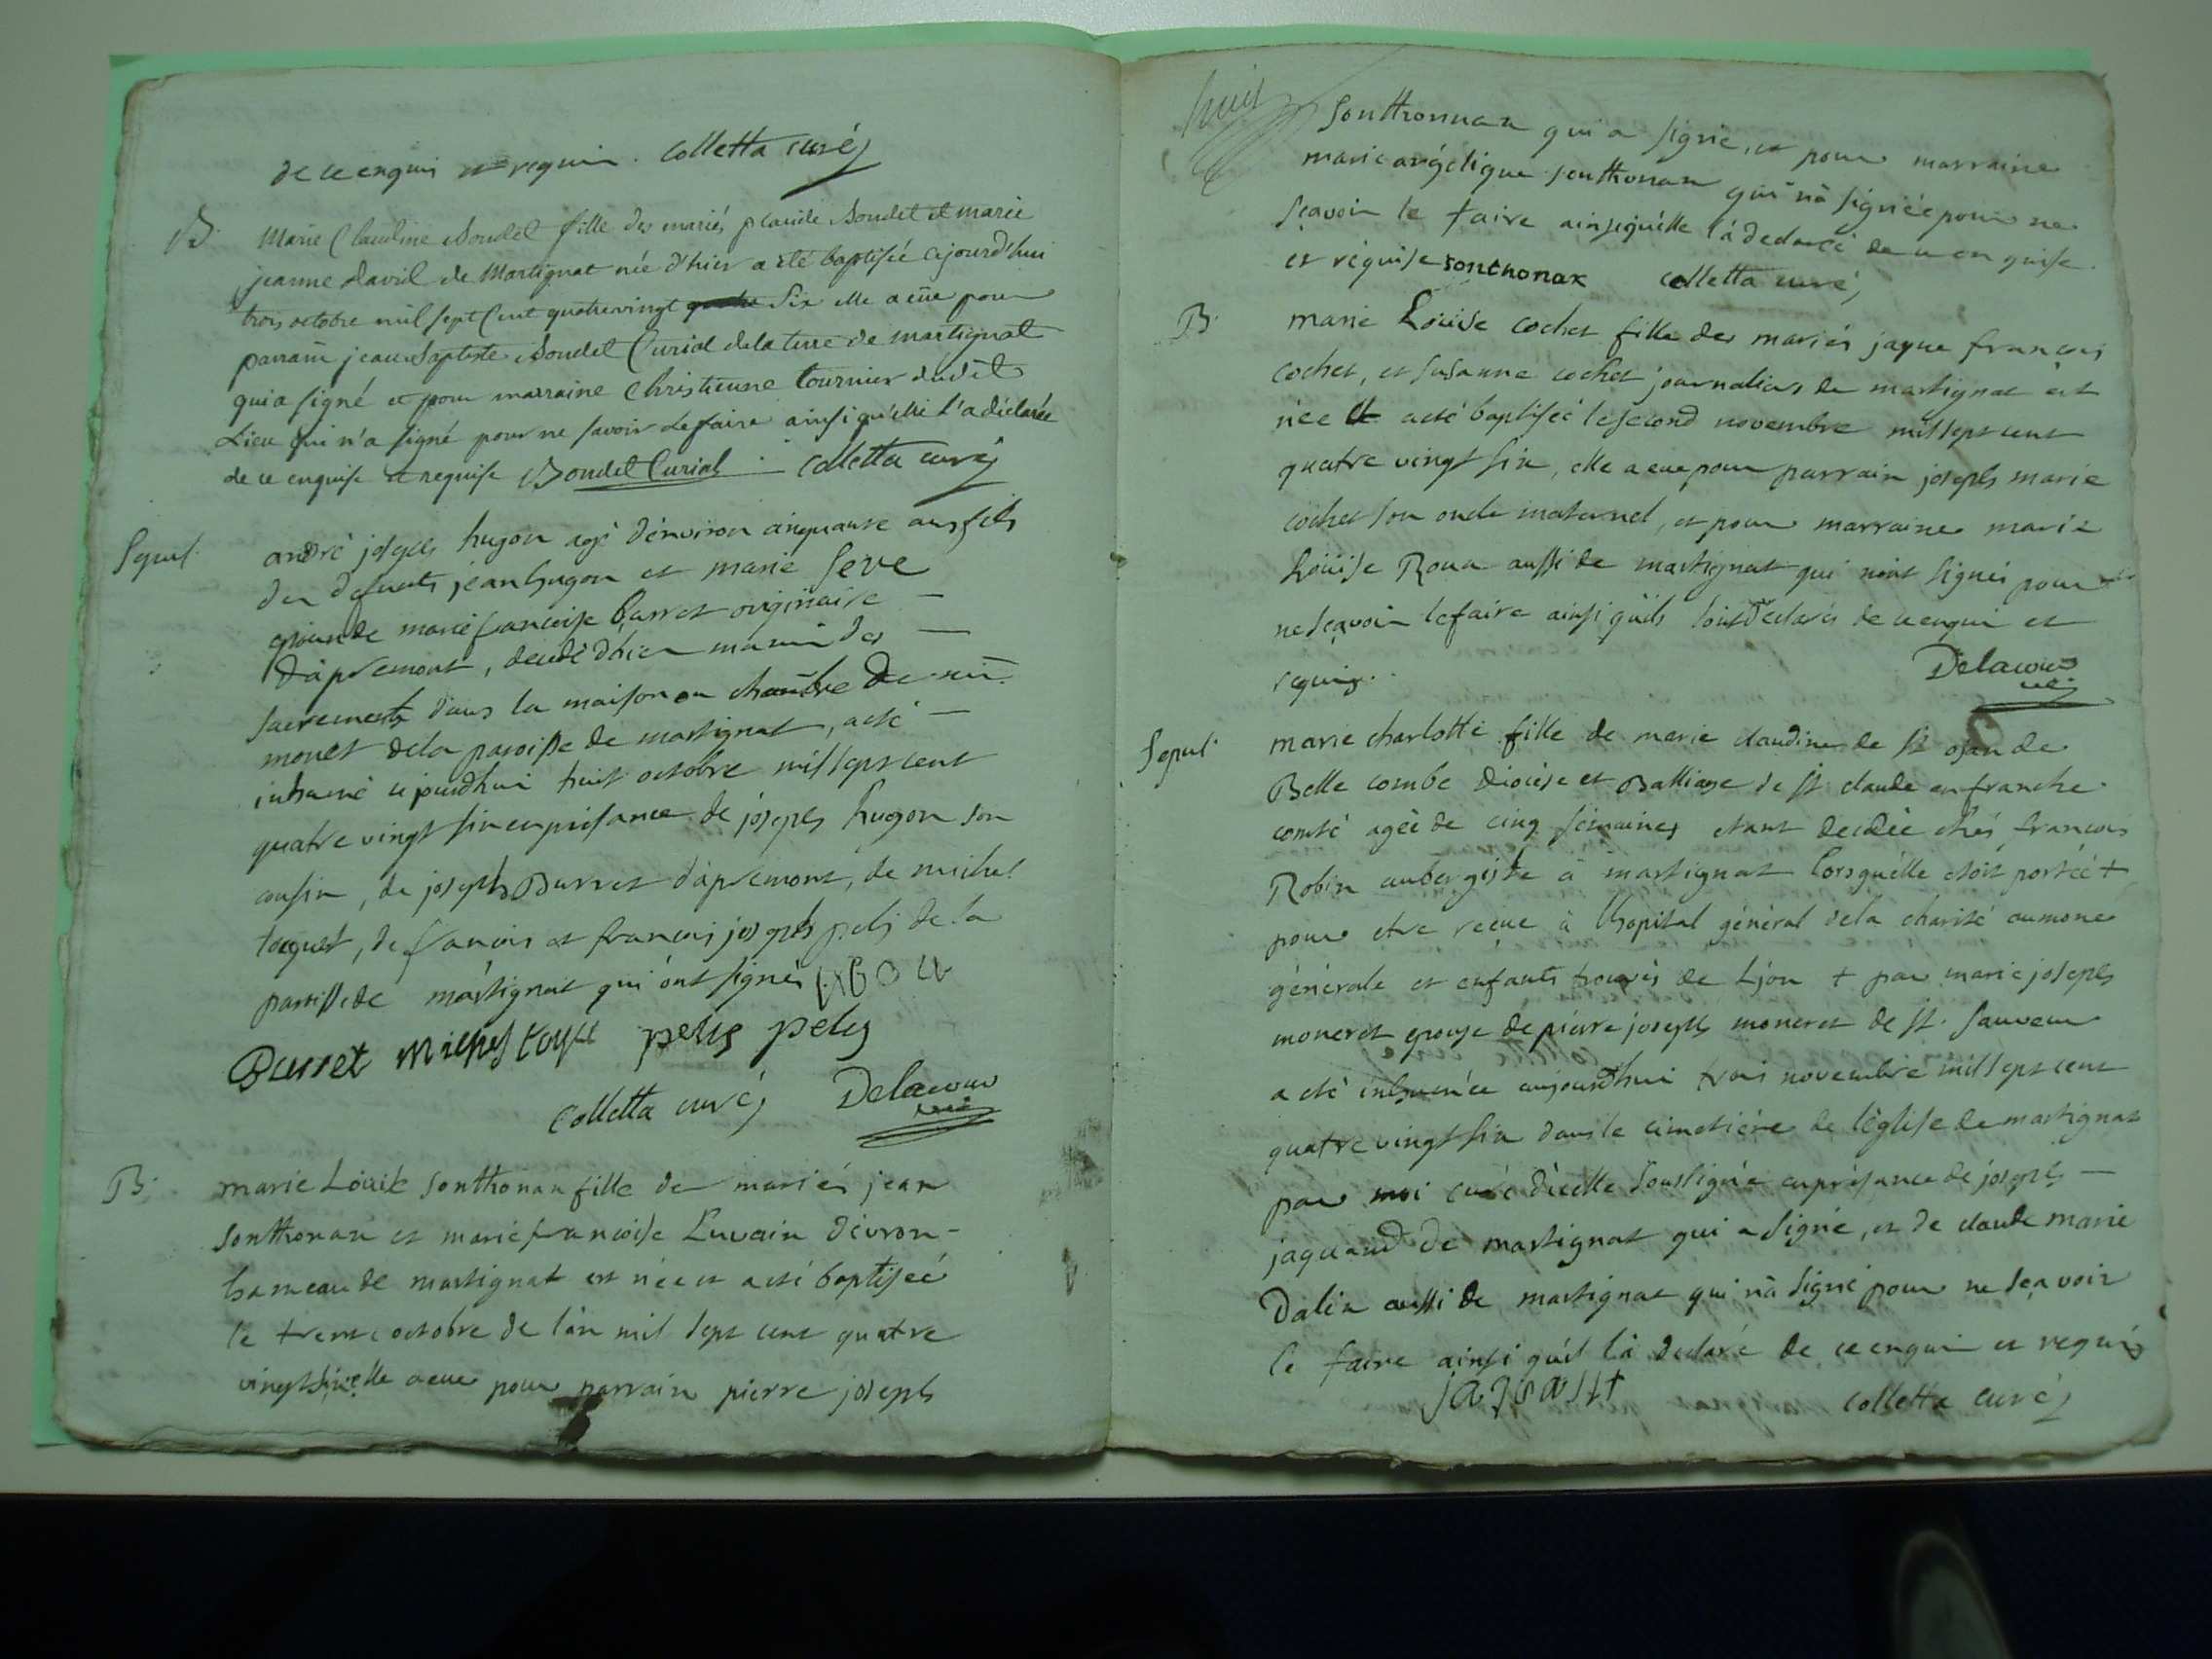 de ce enquis et requis. Colletta curé
B. Marie Claudine Bondet fille des mariés placide Bondet et marie
jeanne david de Martignat née d'hier a été baptisée cejourd'hui
trois octobre mil sept Cent quatrevingt Six elle a eûe pour
parrain jean Baptiste Bondet Curial de la terre de martignat
qui a signé et pour marraine Christienne tournier dudit
Lieu qui n'a signé pour ne savoir le faire ainsi qu'elle l'a déclarée
de ce enquise et requise Bondet Curial Colletta curé
Sepul. andré joseph hugon agé d'environ cinquante ans fils
des defunts jean hugon et marie Seve
epoux de marie francoise Burret originaire
d'apremont, decedé d'hier muni des
sacrements dans la maison en chambre de
monet de la paroisse de martignat, a eté
inhumé cejourdhui huit octobre mil sept cent
quatre vingt six en présance de joseph hugon son
cousin, de joseph Burret d'apremont, de michel
toquet, de francois et francois joseph pelis de la
paroisse de martignat qui ont signés
Burret michel pelis pelis
Colletta curé Delacour
B. marie Löuise sonthonax fille des mariés jean
sonthonax et marie francoise Luvain d'evron
hameau de martignat est née et a eté baptiseé
le trente octobre de l'an mil sept cent quatre
vingt six elle a eue pour parrain pierre joseph
huit
Sonthonnax qui a signé, et pour marraine
marie angélique sonthonax qui n'a signée pour ne
sçavoir le faire ainsi qu'elle l'a declaré de ce enquise
et réquise sonthonax Colletta curé
B. marie Löuise cochet fille des mariés jaque francois
cochet, et susanne cochet journaliers de martignat est
née et a eté baptiseé le second novembre mil sept cent
quatre vingt six, elle a eue pour parrain joseph marie
cochet son oncle maternel, et pour marraine marie
Löuise Roux aussi de martignat qui n'ont signés pour
ne sçavoir le faire ainsi qu'ils l'ont declarés de ce enquis et
requis. Delacour
Sepul. marie charlotte fille de marie claudine de St ojan de
Belle combe diocèse et Balliage de St claude en franche
comté agéé de cinq semaines etant decedée chés francois
Robin aubergiste à martignat lorsqu'elle etoit portéé +
pour etre reçue à l'hopital général de la charité aumone
générale et enfants trouvés de Lyon + par marie joseph
moneret epouse de pierre joseph moneret de St. Sauveur
a eté inhumée aujourdhui trois novembre mil sept cent
quatre vingt six dans le cimetière de l'église de martignat
par moi curé d'icelle soussigné en présance de joseph
jaquand de martignat qui a signé, et de claude marie
Dalin aussi de martignat qui n'a signé pour ne sçavoir
le faire ainsi qu'il l'a declaré de ce enquis et requis
Colletta curé